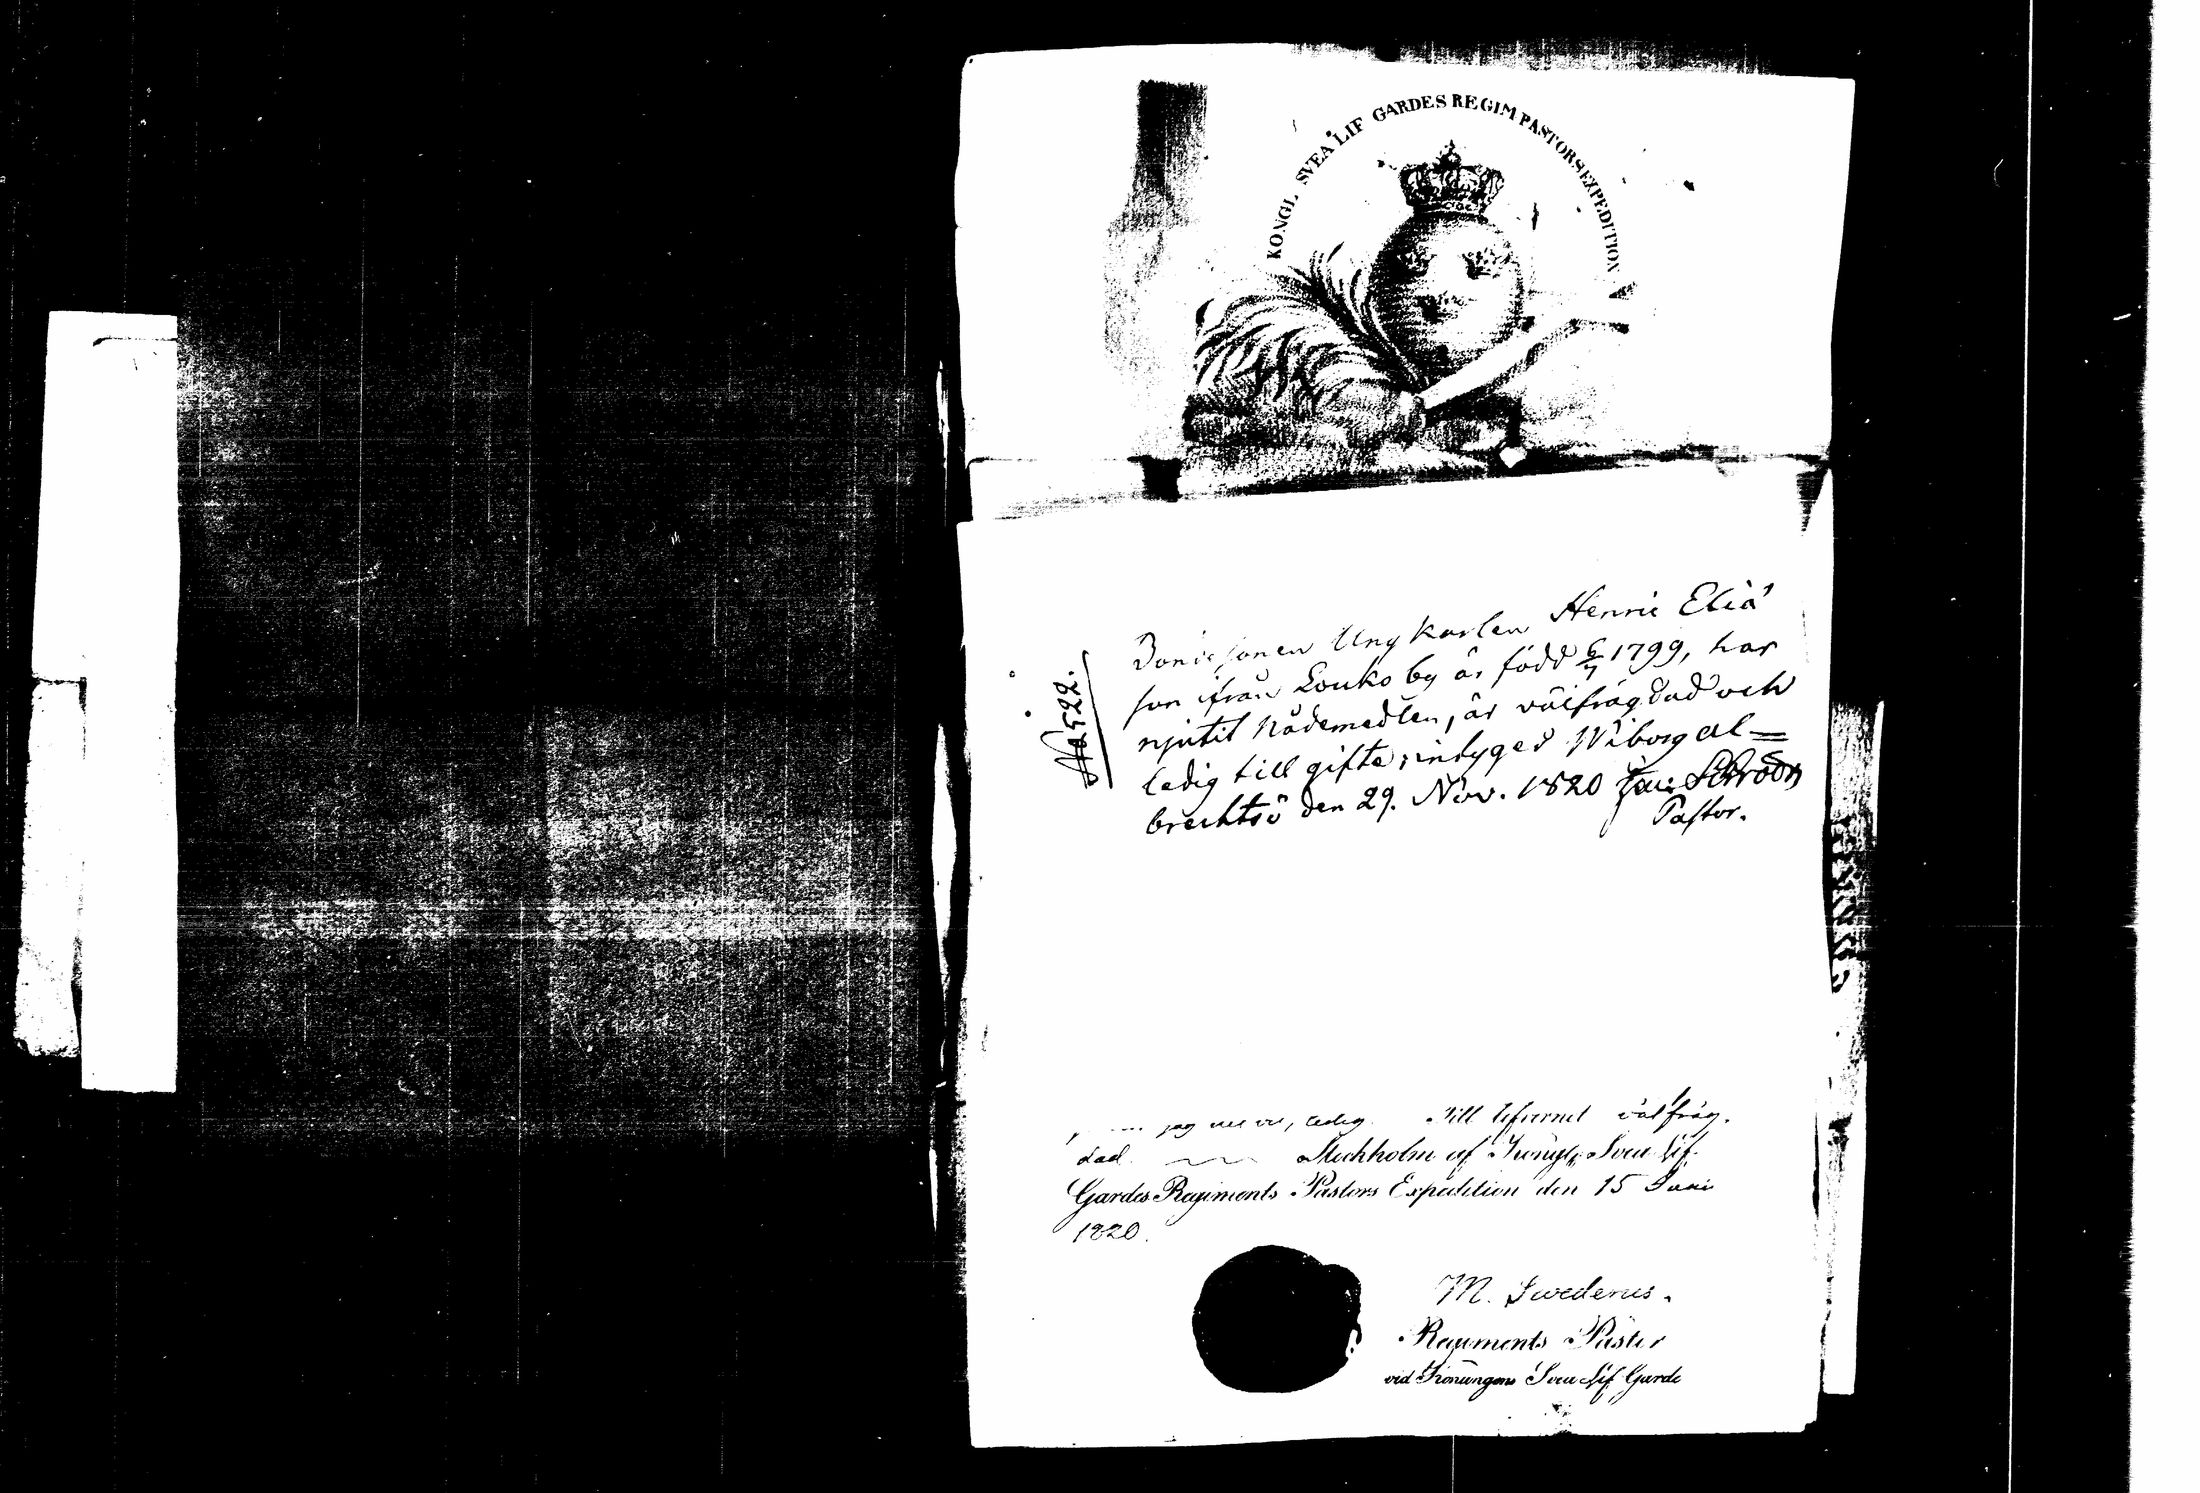 KONGL SVEA LIF GARDES REGIM PASTORSEXPEDITION
No 522.
Bondesonen Ungkarlen Henric Eliä
son ifrån Louko by är född 6/7 1799, har
njutit Nådemedlen, är välfrägdad och
ledig till gifte; intygas Wiborg al=
brechtsö den 29. Nov. 1820
Pastor.
jag vet, ledig. Till lefvernet välfräg.
dad. Stockholm af Kongl. Svea Lif
Gardes Regiments Pastors Expedition den 15 Juni
1820.
M. Swederus.
Regiments Pastor
vid Konungens Svea Lif Garde